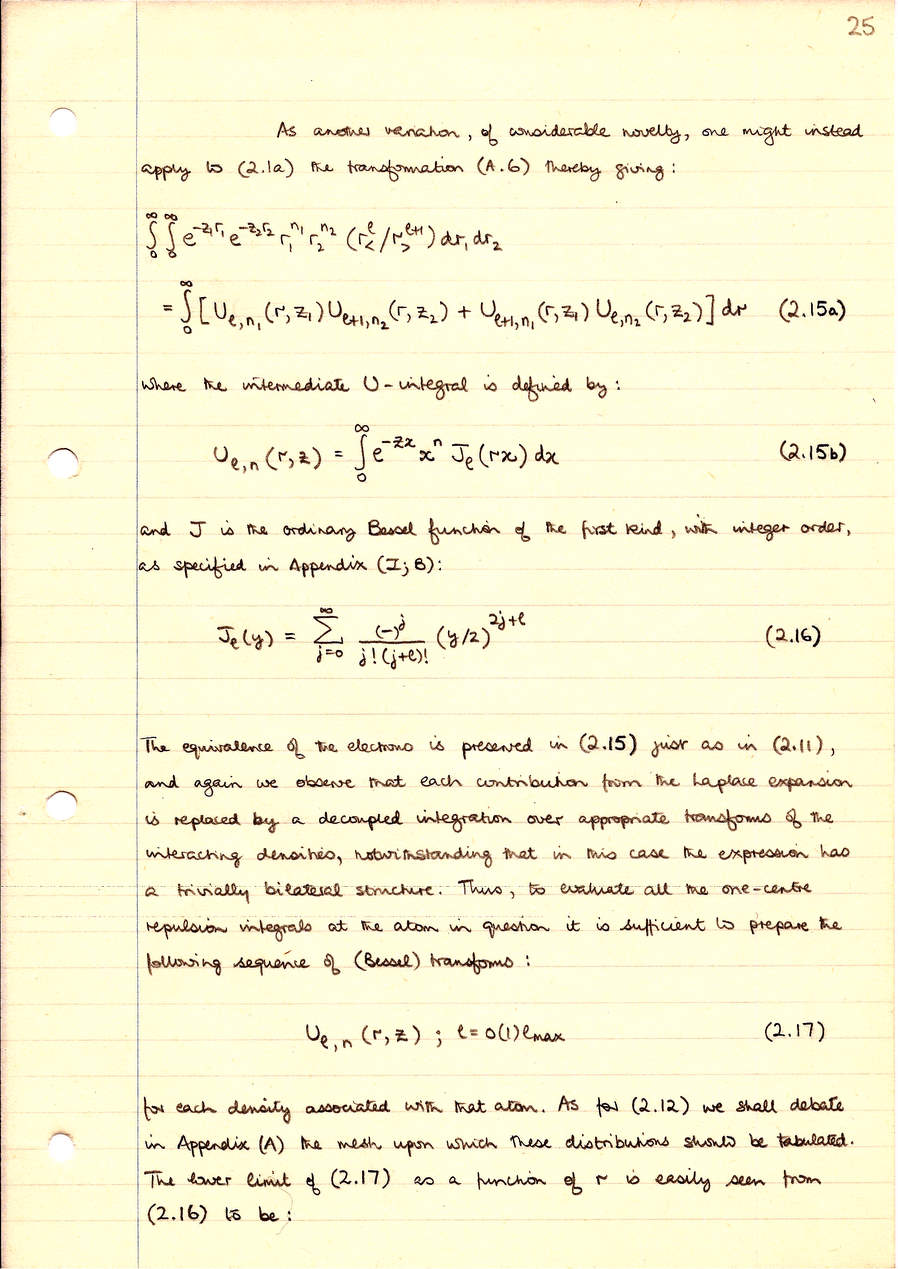 25
As another variation, of considerable novelty, one might instead
apply to (2.1a) the transformation (A.6) thereby giving:
∫₀^∞ ∫₀^∞ e^{-z₁r₁} e^{-z₂r₂} r₁^{n₁} r₂^{n₂} (r_<^ℓ / r_>^{ℓ+1}) dr₁ dr₂
= ∫₀^∞ [U_{ℓ,n₁}(r,z₁) U_{ℓ+1,n₂}(r,z₂) + U_{ℓ+1,n₁}(r,z₁) U_{ℓ,n₂}(r,z₂)] dr (2.15a)
where the intermediate U-integral is defined by:
U_{ℓ,n}(r,z) = ∫₀^∞ e^{-zx} x^n J_ℓ(rx) dx (2.15b)
and J is the ordinary Bessel function of the first kind, with integer order,
as specified in Appendix (I;B):
J_ℓ(y) = ∑_{j=0}^∞ (-)^j / j!(j+ℓ)! (y/2)^{2j+ℓ} (2.16)
The equivalence of the electrons is preserved in (2.15) just as in (2.11),
and again we observe that each contribution from the Laplace expansion
is replaced by a decoupled integration over appropriate transforms of the
interacting densities, notwithstanding that in this case the expression has
a trivially bilateral structure. Thus, to evaluate all the one-centre
repulsion integrals at the atom in question it is sufficient to prepare the
following sequence of (Bessel) transforms:
U_{ℓ,n}(r,z) ; ℓ=0(1)ℓmax (2.17)
for each density associated with that atom. As for (2.12) we shall debate
in Appendix (A) the mesh upon which these distributions should be tabulated.
The lower limit of (2.17) as a function of r is easily seen from
(2.16) to be: